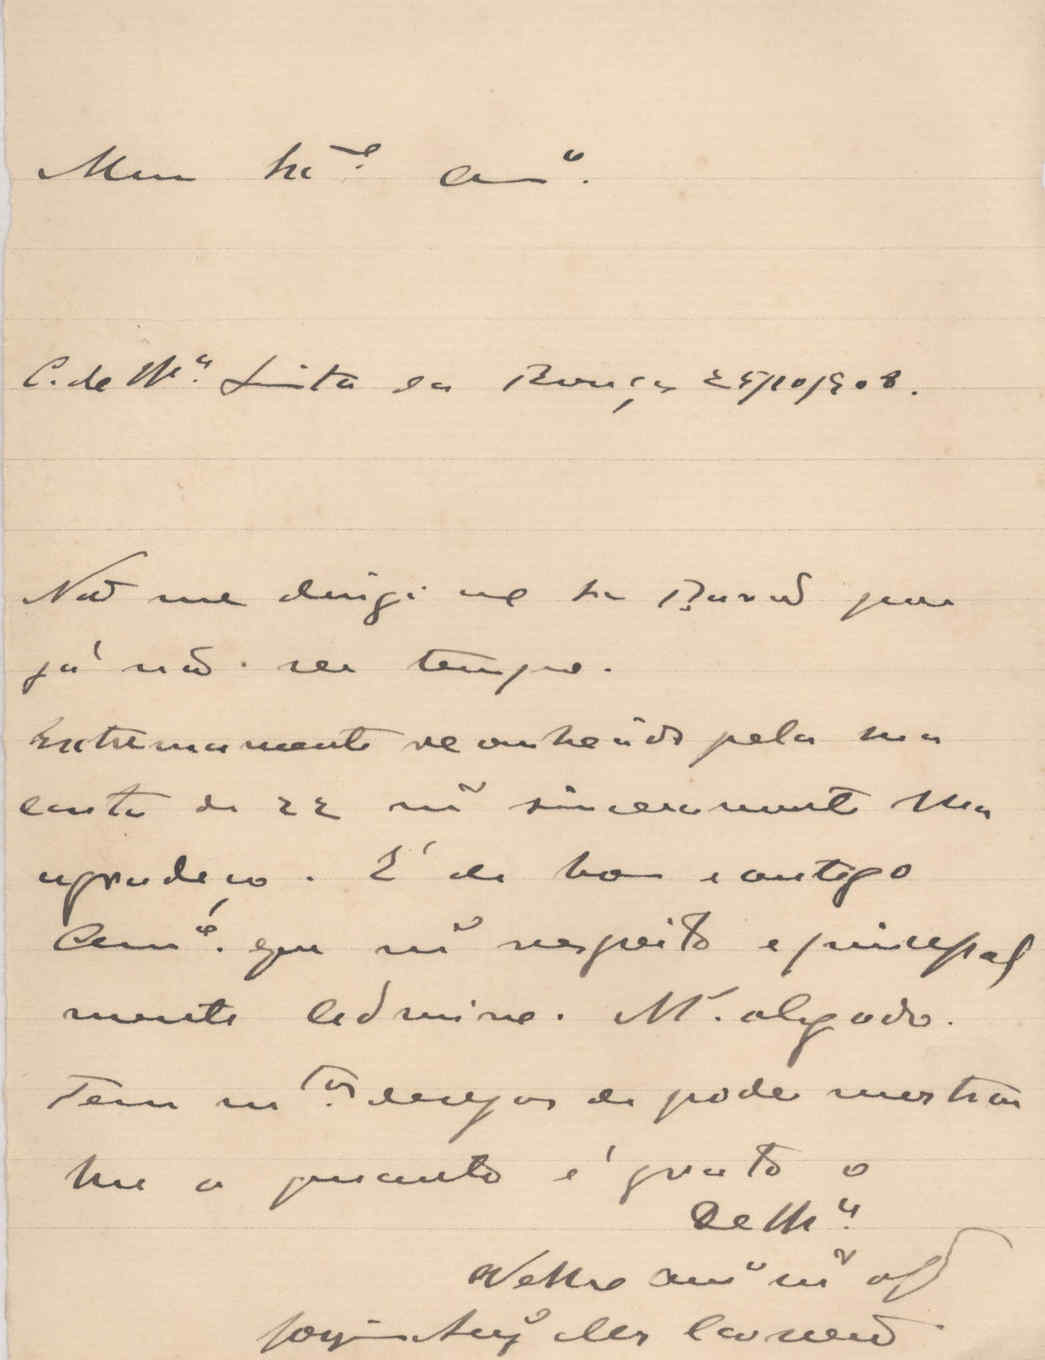 Meu Ex.mo am.o.
C. de V. Ex.a Quinta da Bouça 25/10/908.
Não me dirigi ao Sr. Barão por
já não ser tempo.
Extremamente reconhecido pela sua
carta de 22 mt.o sinceramente lha
agradeço. É de bom e antigo
que mt.o respeito e principal
mente admiro. M.to obrigado.
Tem mt.os desejos de poder mostrar
lhe o quanto é grato o
De V. Ex.a
Velho am.o mt.o obg.